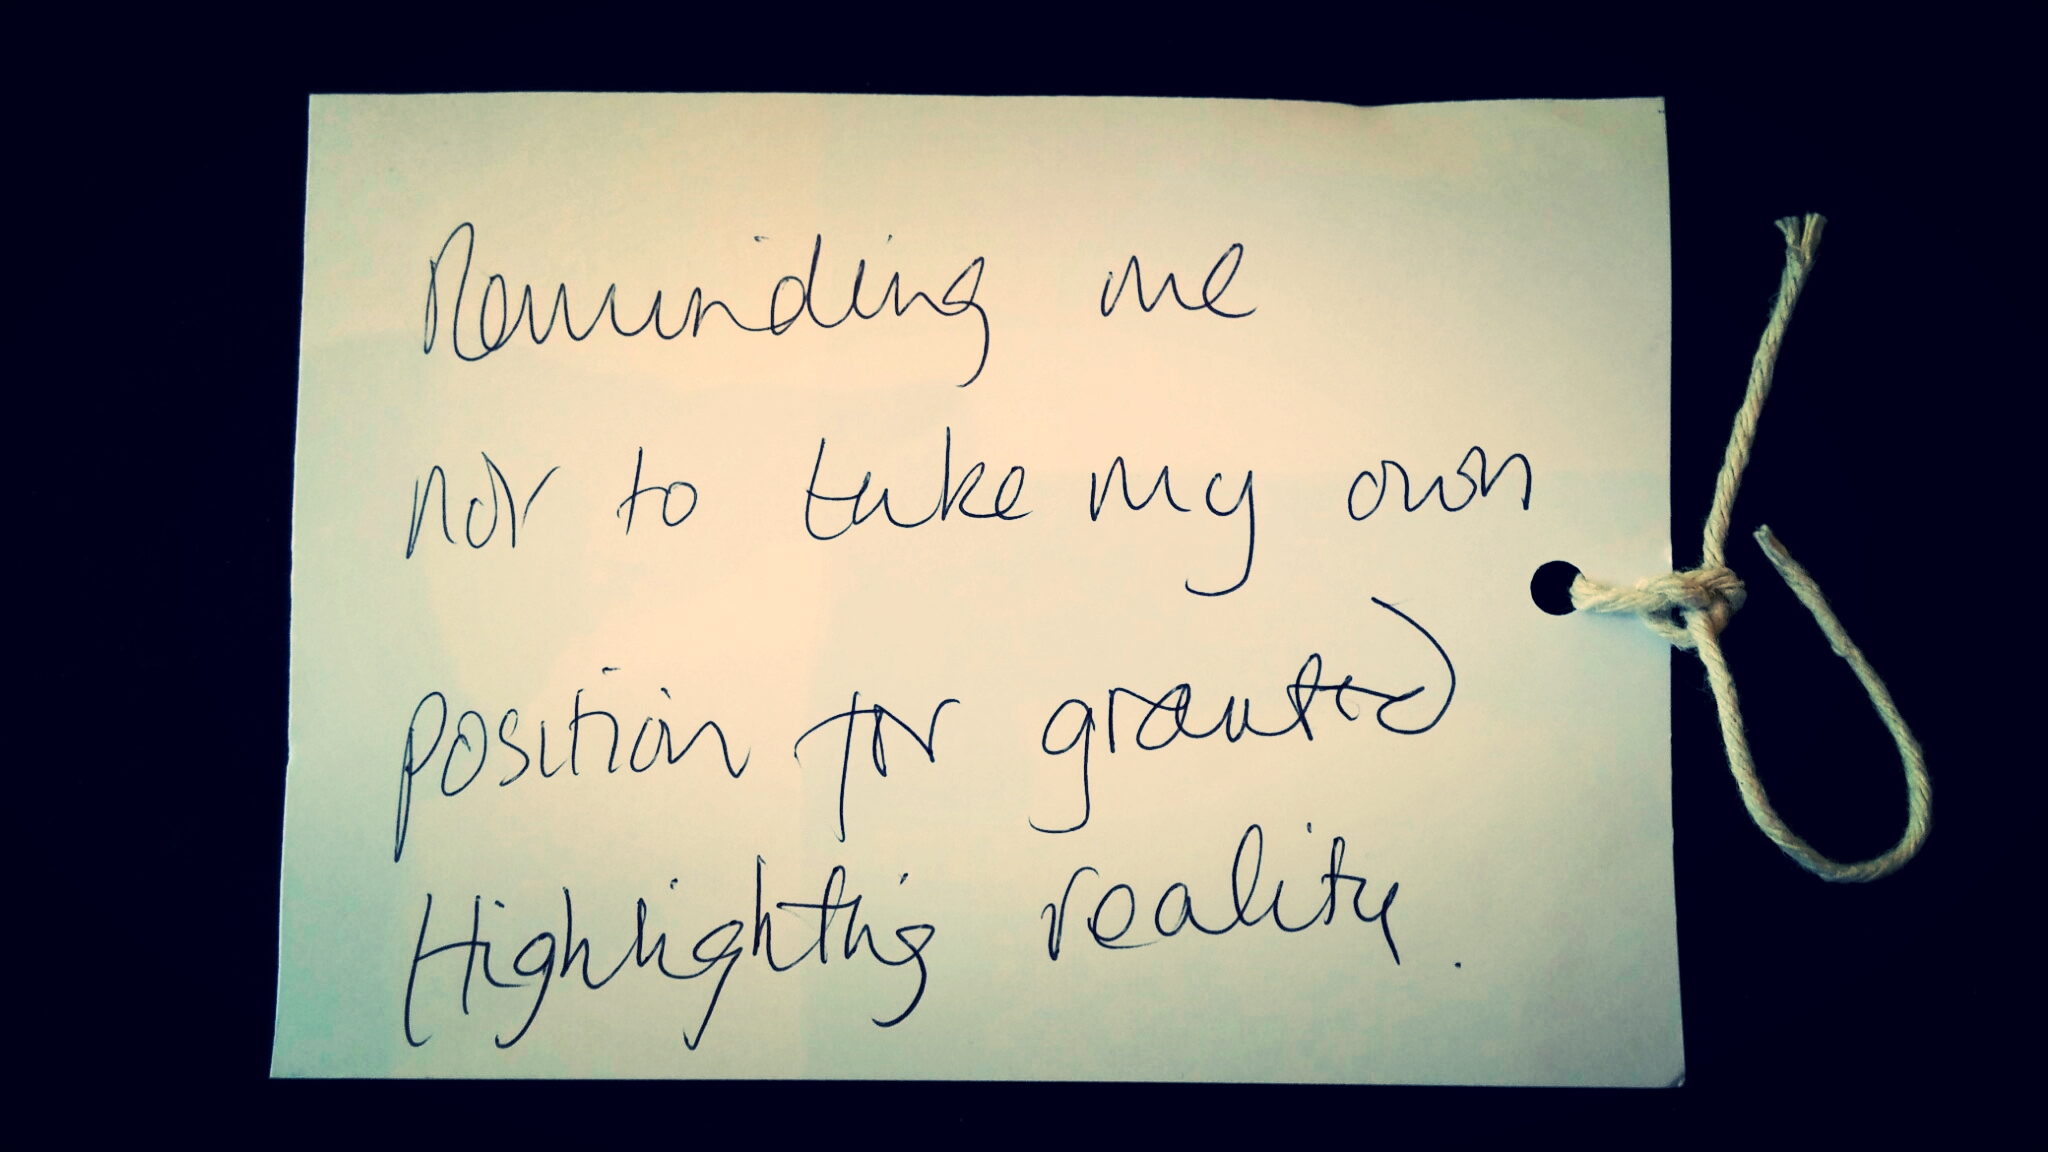 Reminding me
not to take my own
position for granted
Highlighting reality.